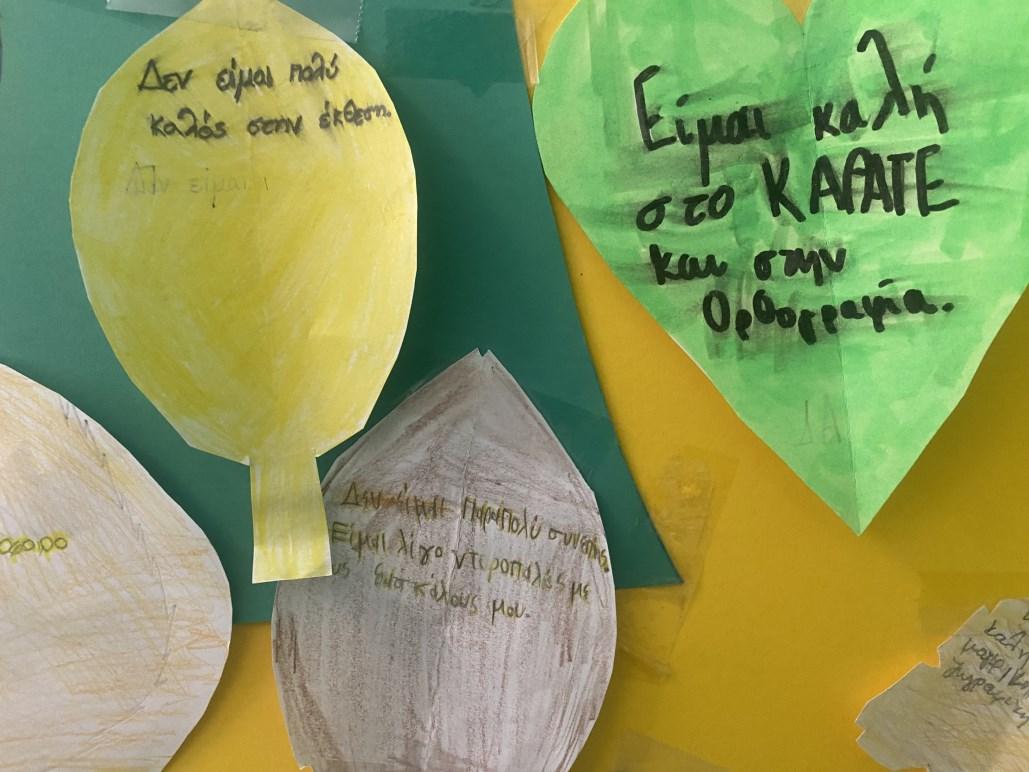 Δεν είμαι πολύ
καλός στην έκθεση.
Δεν είμαι
Είμαι καλή
στο ΚΑΡΑΤΕ
και στην
Ορθογραφία.
ΔΑ
Δεν είμαι παραπολύ συνεπής.
Είμαι λίγο ντροπαλός με
δασκάλους μου.